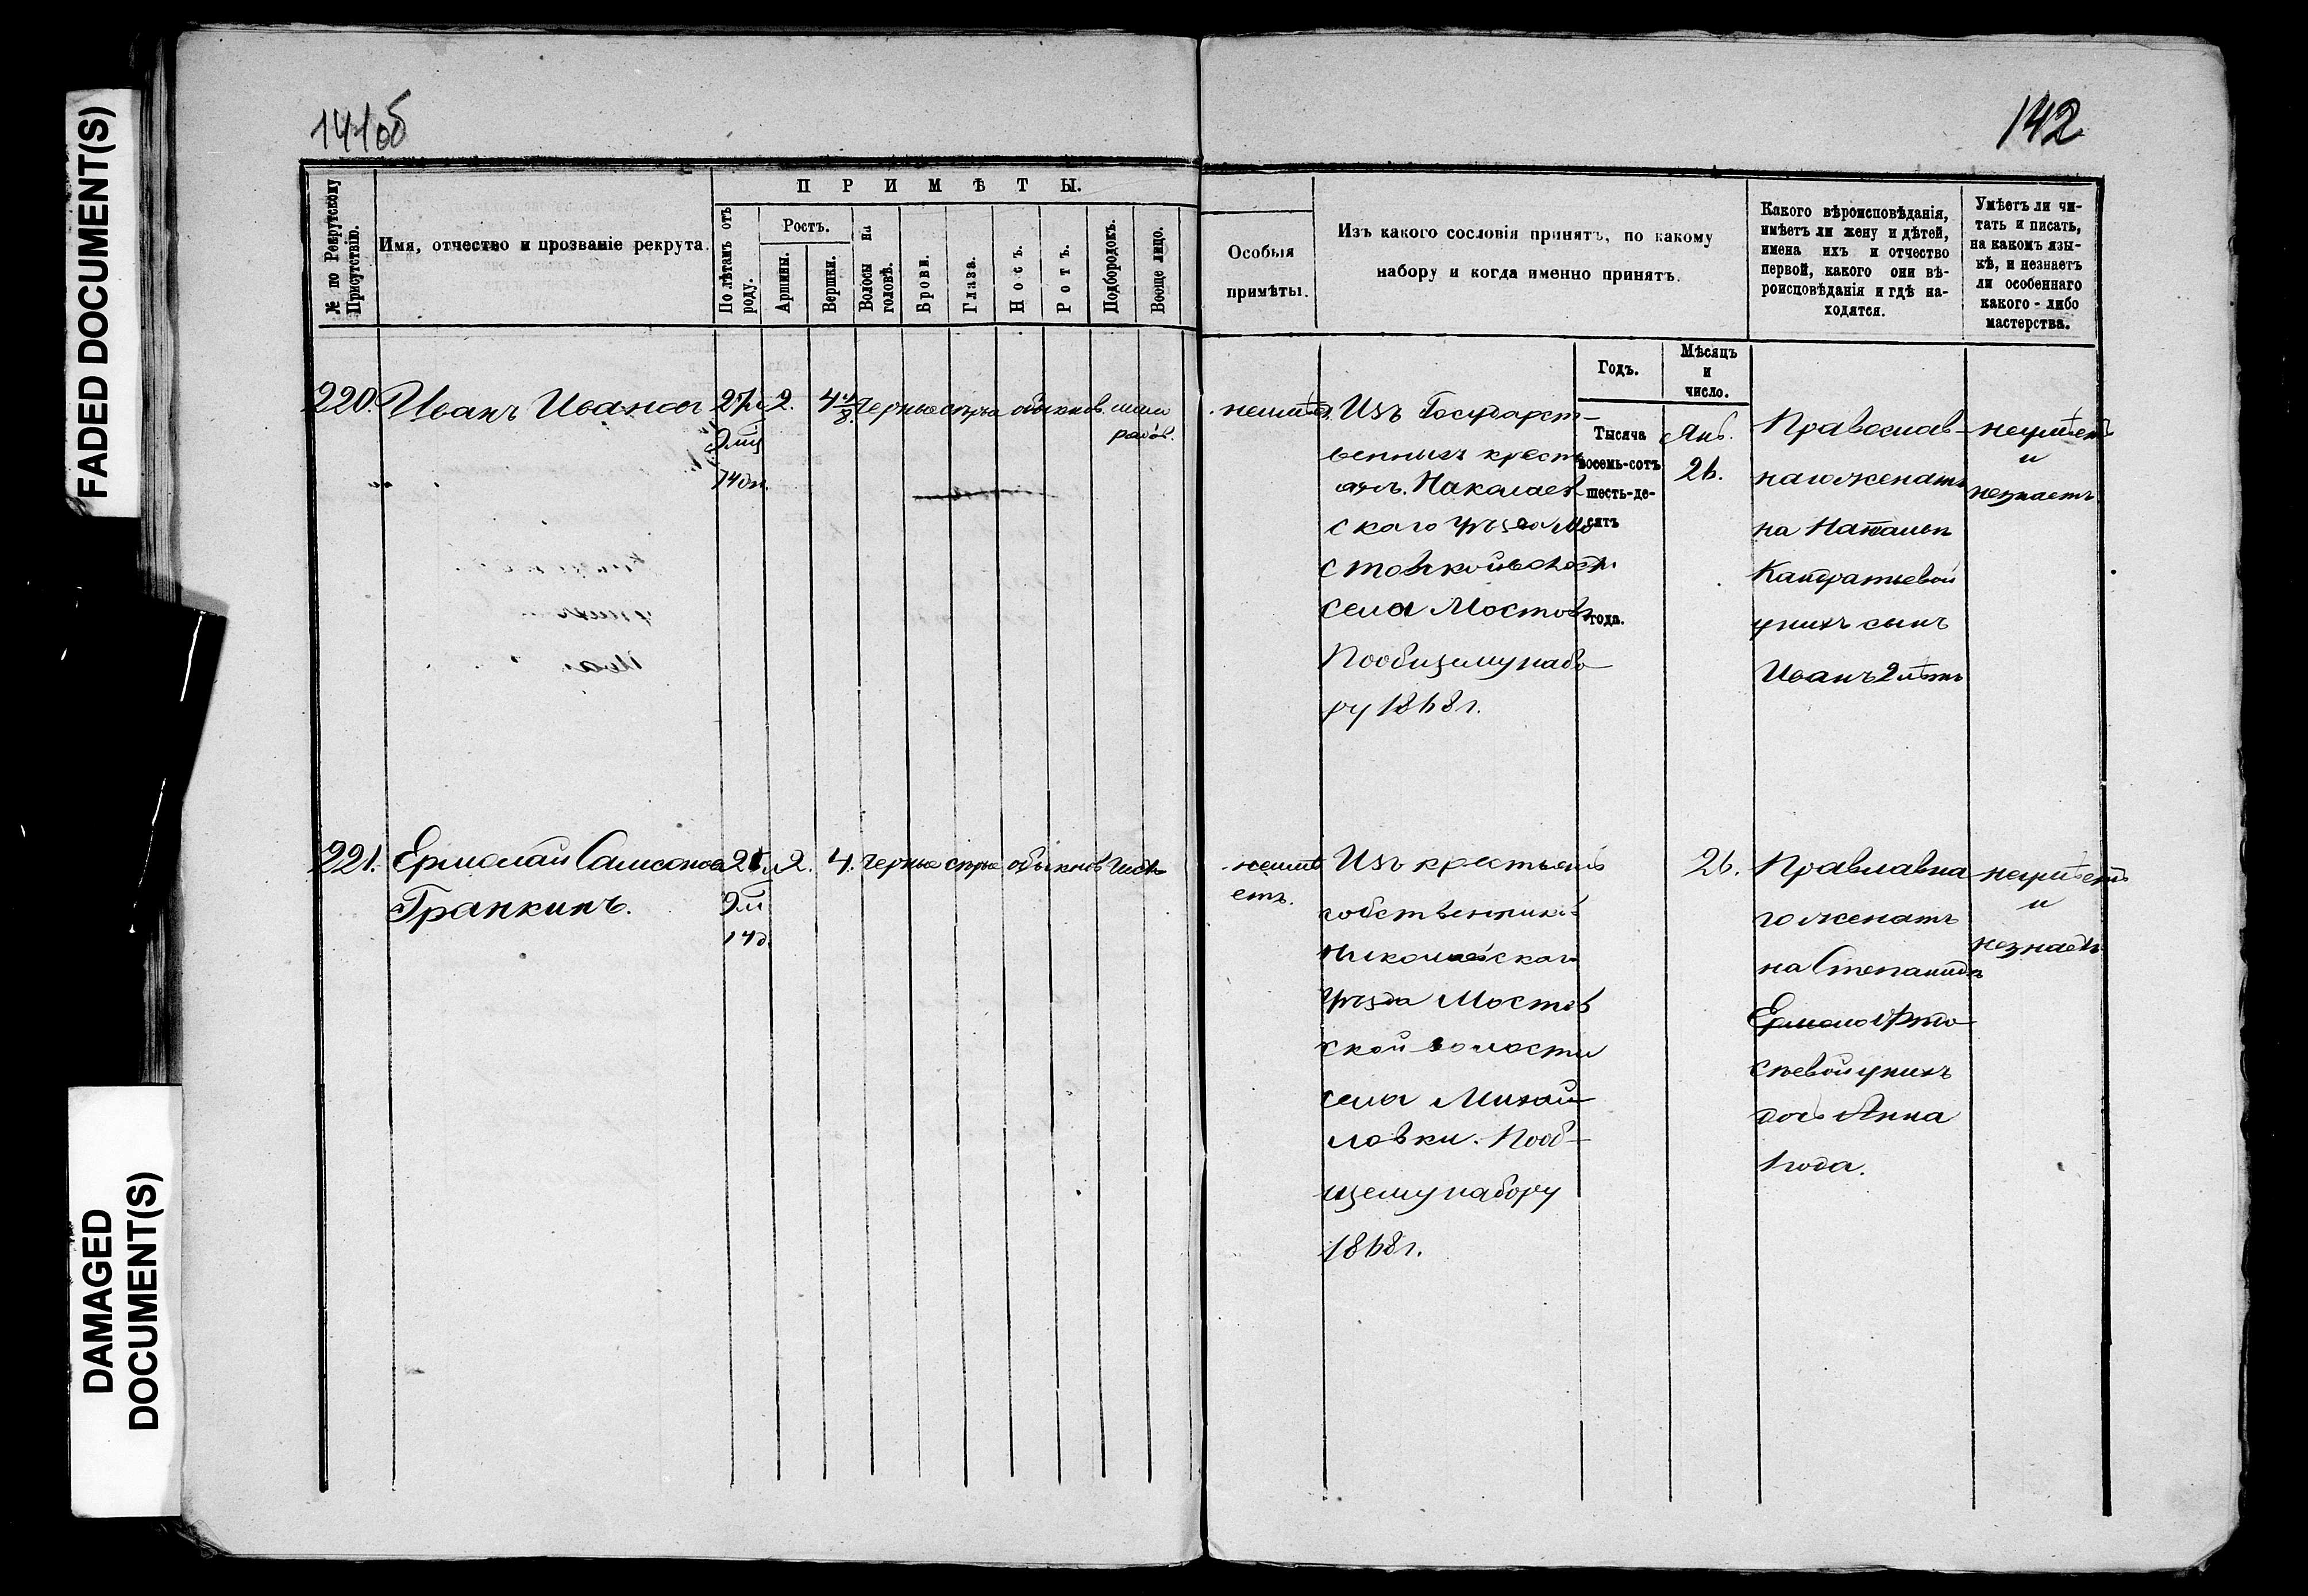 FADED DOCUMENT(S)
DAMAGED
DOCUMENT(S)
141об
142
№ по Рекрутскому
Присутствію.
Имя, отчество и прозваніе рекрута.
ПРИМѢТЫ.
По лѣтамъ отъ
роду.
Ростъ.
Аршины.
Вершки.
Волосы на
головѣ.
Брови.
Глаза.
Носъ.
Ротъ.
Подбородокъ.
Вооще лицо.
Особыя
примѣты.
Изъ какого сословія принятъ, по какому
набору и когда именно принятъ.
Годъ.
Мѣсяцъ
и
число.
Какого вѣроисповѣданія,
имѣетъ ли жену и дѣтей,
имена ихъ и отчество
первой, какого они вѣ-
роисповѣданія и гдѣ на-
ходятся.
Умѣетъ ли чи-
тать и писать,
на какомъ язы-
кѣ, и незнаетъ
ли особеннаго
какого-либо
мастерства.
220. Иванъ Ивановъ
2.
черные сѣрые обыкнов.
14 дн.
Изъ Государст-
венныхъ крестъ
янъ. Николаев
скаго уѣзда Мо
стовской волости
села Мостовъ
Пообщему набо-
ру 1868 г.
Тысяча
восемь-сотъ
шесть-де-
сятъ
года.
Янв.
26.
Православ-
наго женатъ
на Натальѣ
Кандратьевой
у нихъ сынъ
Иванъ 2 лѣтъ
неумѣетъ
и
незнаетъ
221. Ермолай Самсоновъ
Гранкинъ.
2. 4. черные сѣрые обыкнов чист
14 д.
неимѣ
етъ.
Изъ крестьянъ
собственниковъ
Николаевскаго
уѣзда Мостов
ской волости
села Михай-
ловки. Пооб-
щему набору
1868 г.
26.
Правлавна
го женатъ
на Степанидѣ
сѣевой у нихъ
дочь Анна
1 года.
неумѣетъ
и
незнаетъ